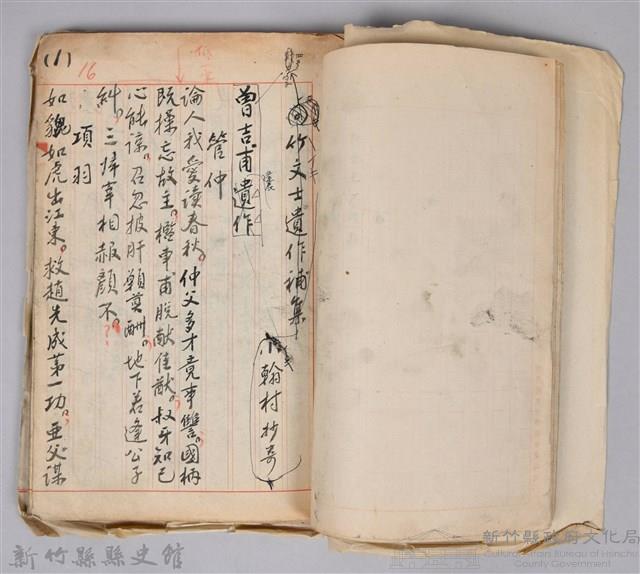 (1)
16
竹文士遺作補集
小翰村抄寄
曾吉甫遺作
管仲
論人我愛讀春秋。仲父多才竟事讐。國柄
既操忘故主。檻車甫脫献佳猷。叔牙知己
心能諒。召忽披肝願莫酬。地下若逢公子
糾。三歸事相赧顏不。??
項羽
如貔如虎出江東。救趙先成第一功。亞父謀
新竹縣縣史館
新竹縣政府文化局
Cultural Affairs Bureau of Hsinchu
County Government